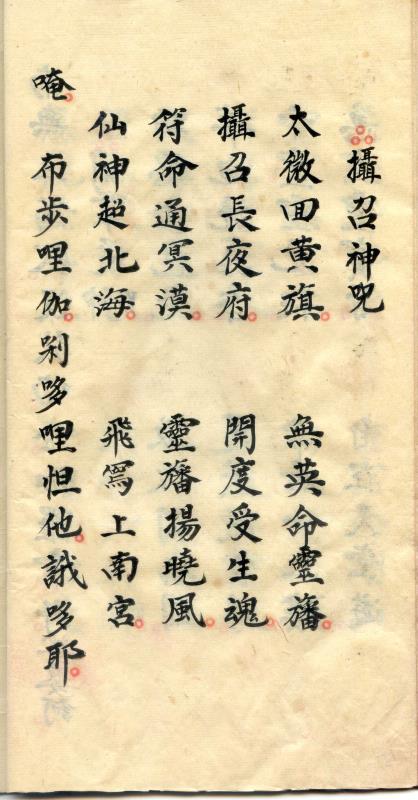 攝召神咒
太微回黄旗 無英命靈旛
攝召長夜府 開度受生魂
符命通冥漠 靈旛揚曉風
仙神超北海 飛駕上南宮
唵 布步哩伽剁哆哩怛他誐哆耶